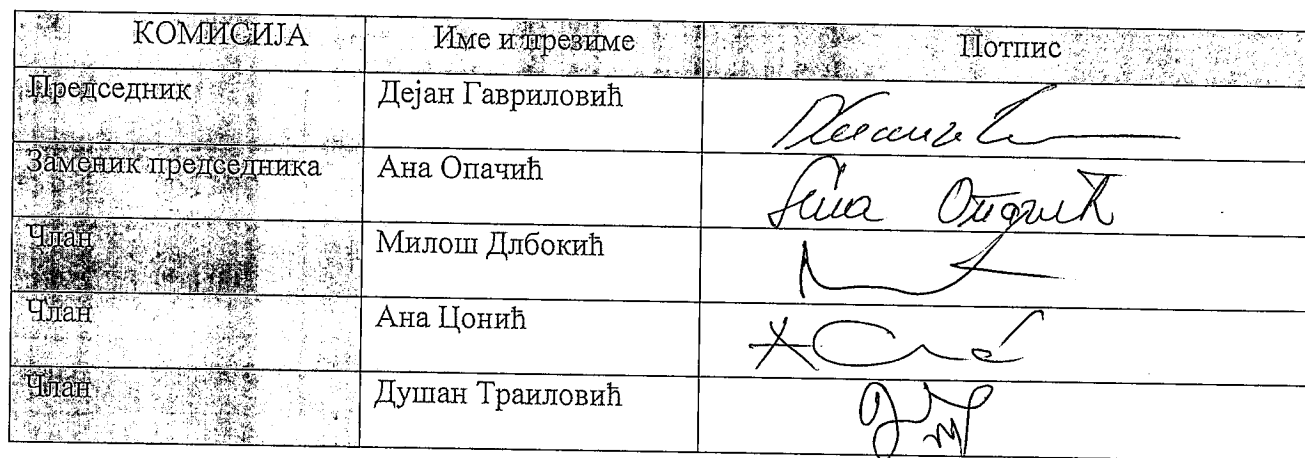 КОМИСИЈА Име и презиме Потпис
Председник Дејан Гавриловић
Заменик председника Ана Опачић Ана Опачић
Члан Милош Длбокић
Члан Ана Цонић
Члан Душан Траиловић